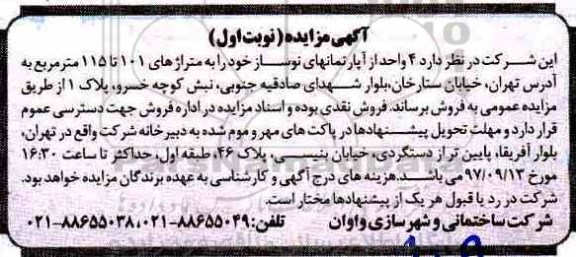 آگهی مزایده (نوبت اول)
این شرکت در نظر دارد ۴ واحد از آپارتمانهای نوساز خود را به متراژهای ۱۰۱ تا ۱۱۵ مترمربع به
آدرس تهران، خیابان ستارخان، بلوار شهدای صادقیه جنوبی، نبش کوچه خسرو، پلاک ۱ از طریق
مزایده عمومی به فروش برساند. فروش نقدی بوده و اسناد مزایده در اداره فروش جهت دسترسی عموم
قرار دارد و مهلت تحویل پیشنهادها در پاکت های مهر و موم شده به دبیرخانه شرکت واقع در تهران،
بلوار آفریقا، پایین تر از دستگردی، خیابان بنیسی، پلاک ۴۶، طبقه اول، حداکثر تا ساعت ۱۶:۳۰
مورخ ۹۷/۰۹/۱۳ می باشد. هزینه های درج آگهی و کارشناسی به عهده برندگان مزایده خواهد بود.
شرکت در رد یا قبول هر یک از پیشنهادها مختار است.
شرکت ساختمانی و شهرسازی واوان تلفن: ۸۸۶۵۵۰۴۹-۰۲۱، ۸۸۶۵۵۰۳۸-۰۲۱